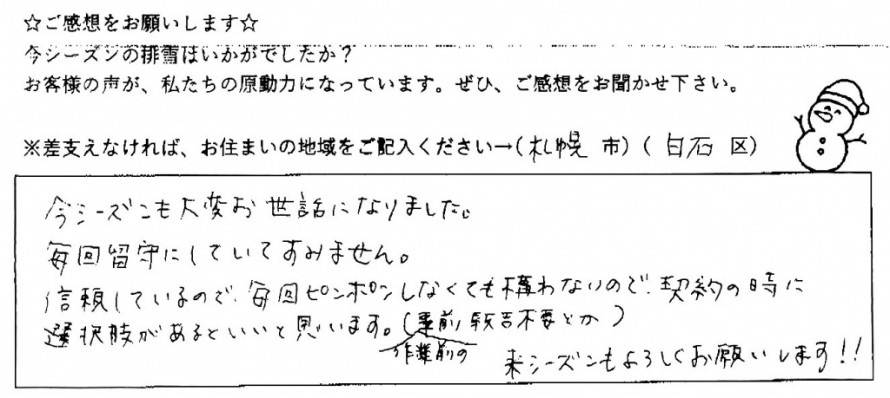 ☆ご感想をお願いします☆
今シーズンの排雪はいかがでしたか？
お客様の声が、私たちの原動力になっています。ぜひ、ご感想をお聞かせ下さい。
※差支えなければ、お住まいの地域をご記入ください→(札幌 市) (白石 区)
今シーズンも大変お世話になりました。
毎回留守にしていてすみません。
信頼しているので、毎回ピンポンしなくても構わないので、契約の時に
選択肢があるといいと思います。(事前報告不要とか)
作業前の
来シーズンもよろしくお願いします!!